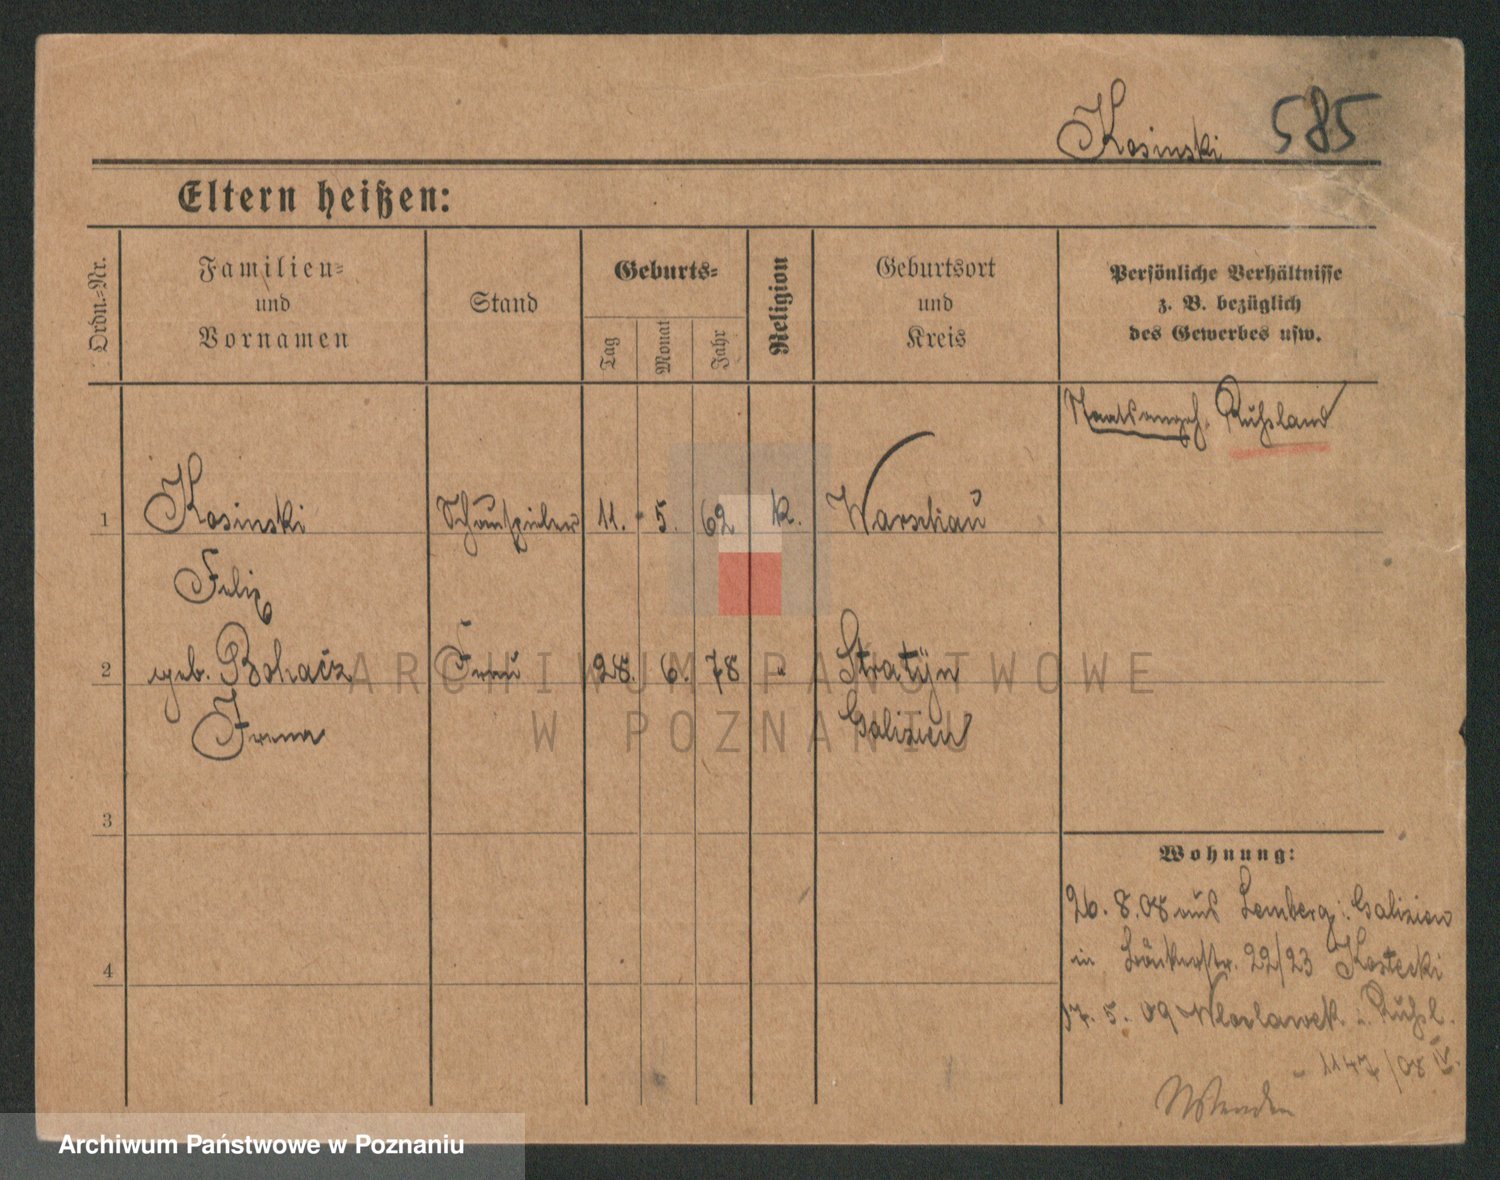 Kosinski 585
Eltern heißen:
Ordn.=Nr.
Familien=
und
Vornamen
Stand
Geburts=
Tag
Monat
Jahr
Religion
Geburtsort
und
Kreis
Persönliche Verhältnisse
z. B. bezüglich
des Gewerbes usw.
Staatsangeh. Rußland
1 Kosinski Schauspieler 11. 5. 62 k. Warschau
Felix
2 geb. Frau 28. 6. 78 " Stratyn
Irena Galizien
3
Wohnung:
26. 8. 08 aus Lemberg i. Galizien
in 22/23 Kostecki
4
17. 5. 09 Wloclawek i. Rußl.
1147/08 IV.
Wenden
ARCHIWUM PAŃSTWOWE
W POZNANIU
Archiwum Państwowe w Poznaniu